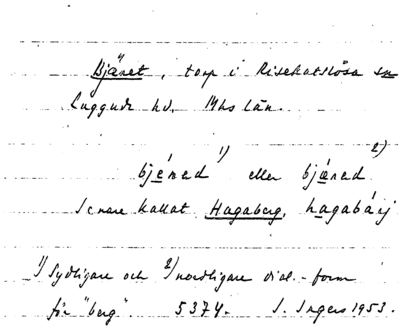 Bjäret, torp i Risekatslösa sn
Luggude hd. Mhs län.
1) 2)
bjéred eller bjæ̀red
Senare kallat Hagaberg, hagabárj
1) Sydligare och 2) nordligare dial.-form
för "berg". 5374. I. Ingers 1953.